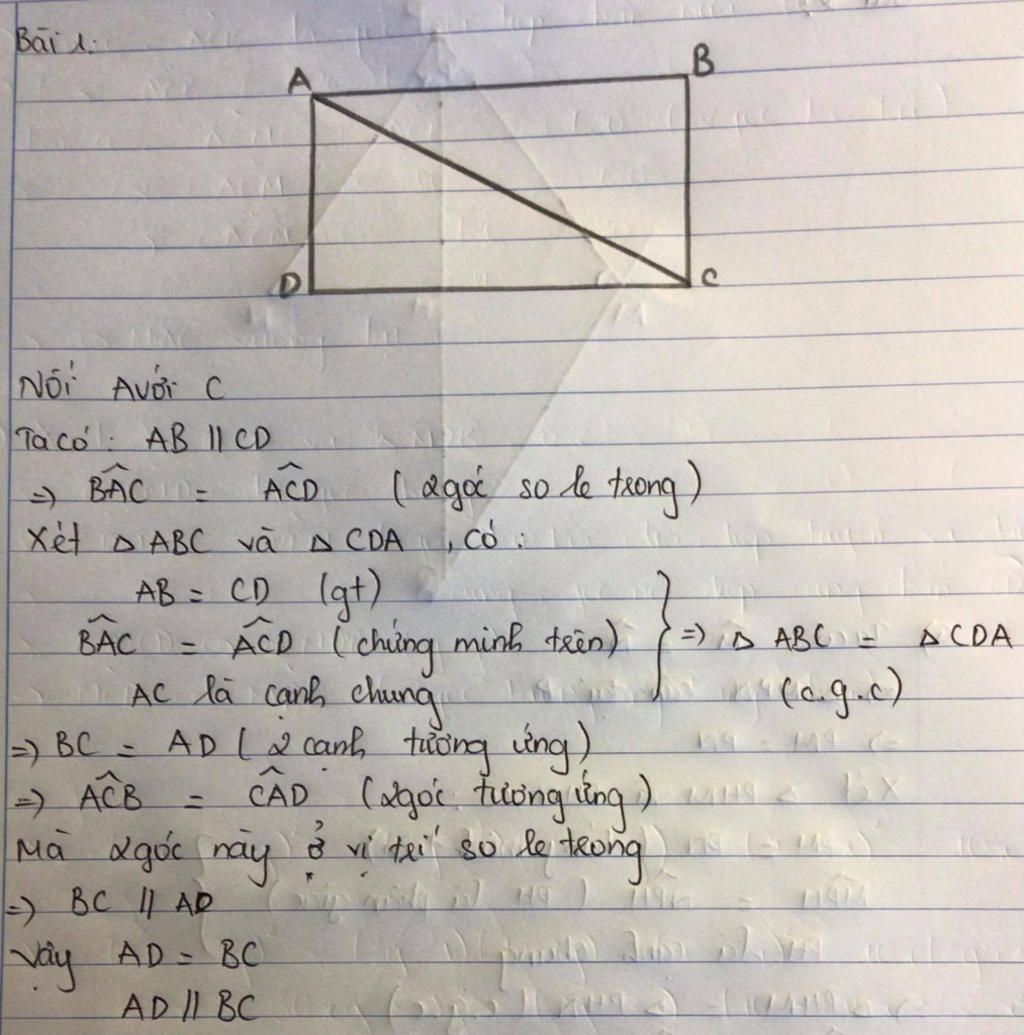 Bài 1:
A
B
D
C
Nối A với C
Ta có: AB // CD
=> BAC = ACD (2 góc so le trong)
Xét Δ ABC và Δ CDA, có:
AB = CD (gt)
BAC = ACD (chứng minh trên) } => Δ ABC = Δ CDA
AC là cạnh chung (c.g.c)
=> BC = AD (2 cạnh tương ứng)
=> ACB = CAD (2 góc tương ứng)
Mà 2 góc này ở vị trí so le trong
=> BC // AD
Vậy AD = BC
AD // BC